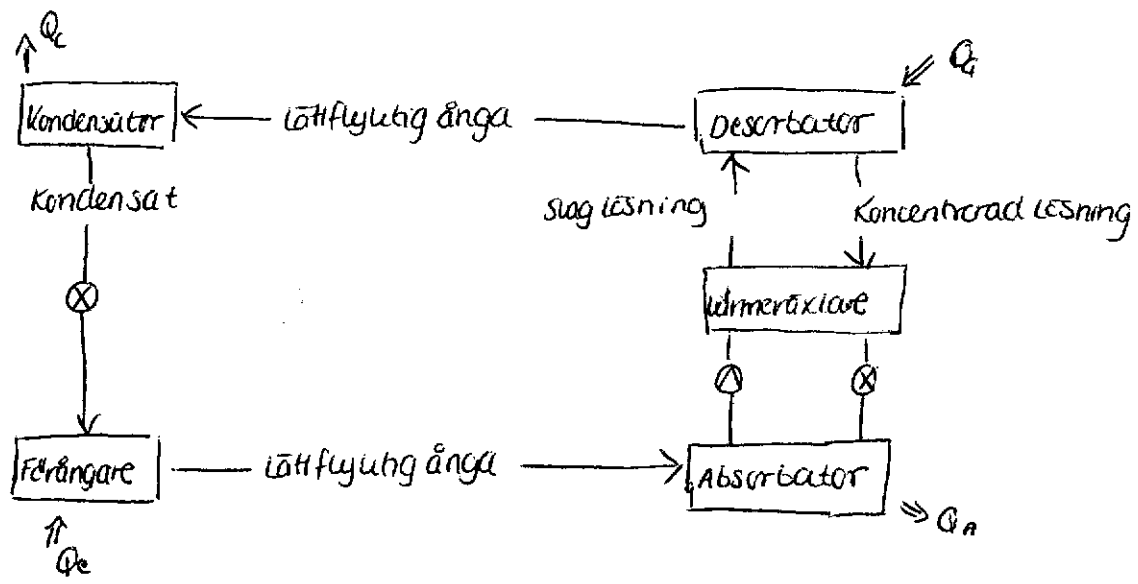 Qc
QG
Kondensator
Lättflyktig ånga
Desorbator
Kondensat
Svag lösning
Koncentrerad lösning
Värmeväxlare
Förångare
Lättflyktig ånga
Absorbator
QA
Qe